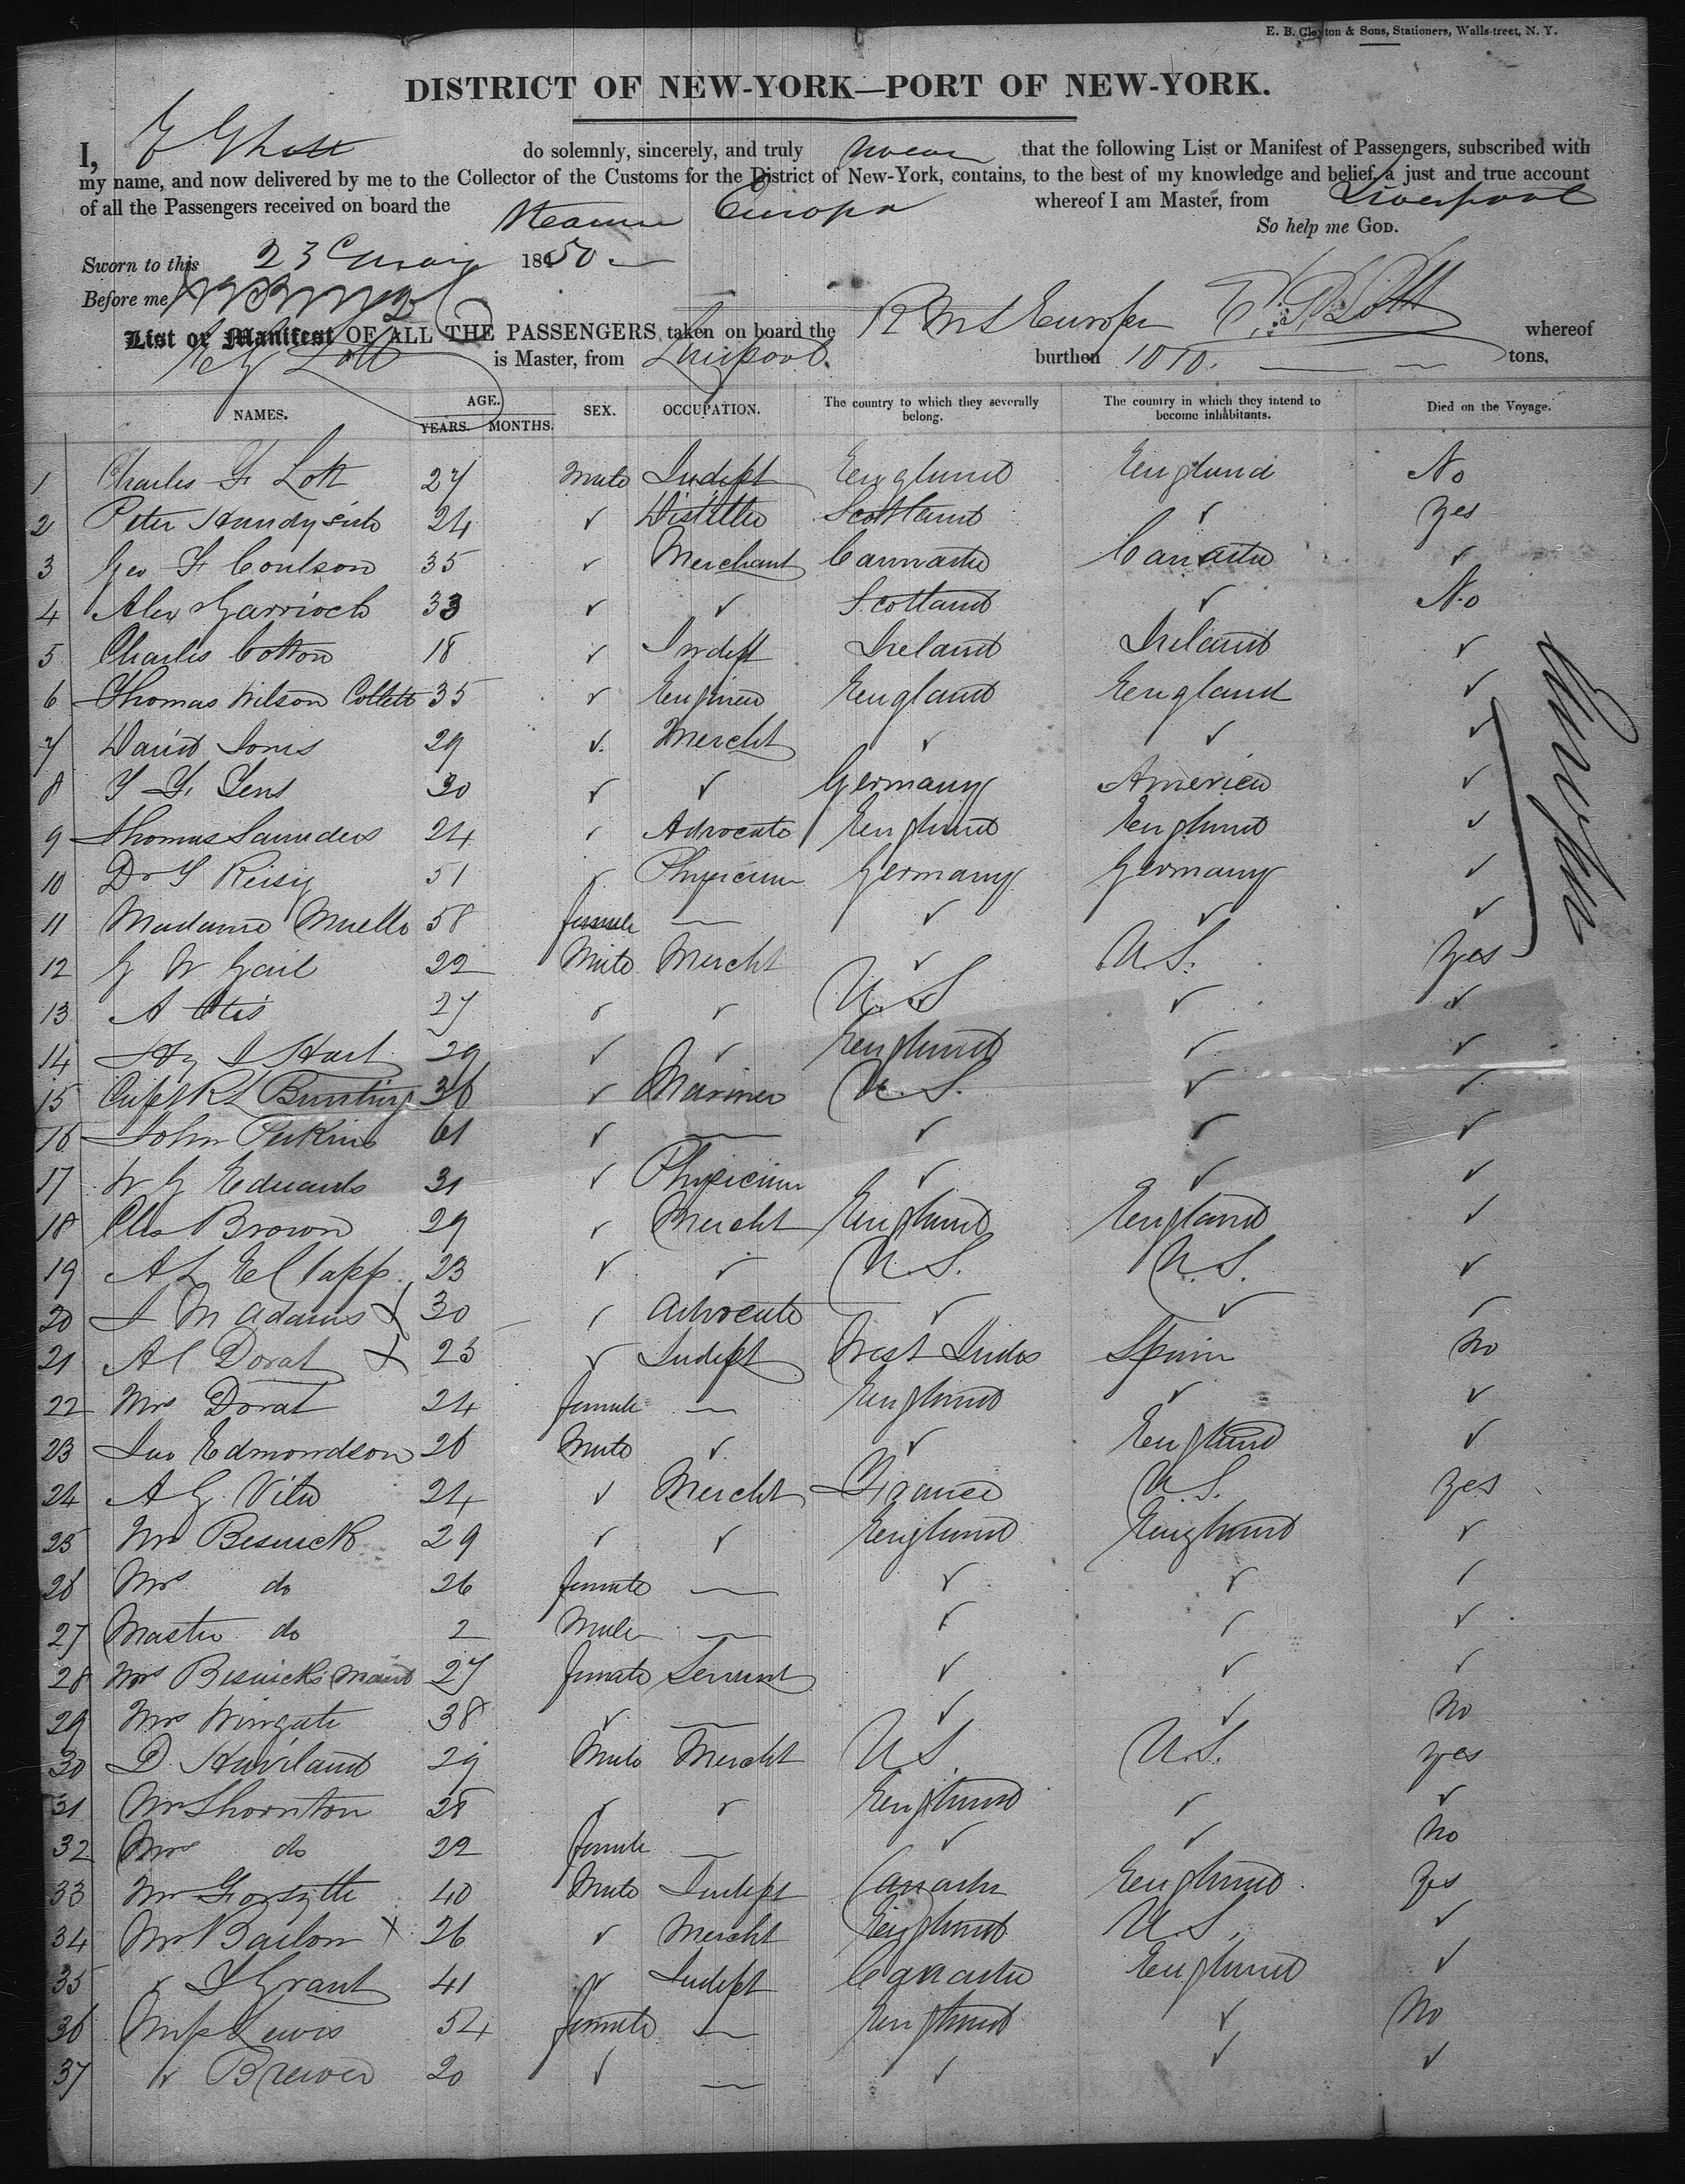 E. B. Clayton & Sons, Stationers, Wall-street, N. Y.
DISTRICT OF NEW-YORK—PORT OF NEW-YORK.
I, do solemnly, sincerely, and truly swear that the following List or Manifest of Passengers, subscribed with
my name, and now delivered by me to the Collector of the Customs for the District of New-York, contains, to the best of my knowledge and belief, a just and true account
of all the Passengers received on board the Steamer Europa whereof I am Master, from Liverpool
So help me GOD.
Sworn to this 23 May 1850
Before me
List or Manifest OF ALL THE PASSENGERS taken on board the R M S Europa whereof
E G Lott is Master, from Liverpool burthen 1010 tons.
NAMES. AGE. YEARS. MONTHS. SEX. OCCUPATION. The country to which they severally belong. The country in which they intend to become inhabitants. Died on the Voyage.
1 Charles F Lott 27 Male Indept England England No
2 Peter Handyside 24 ✓ Distiller Scotland ✓ yes
3 Geo F Coulson 35 ✓ Merchant Cannada Canada ✓
4 Alex Garrioch 33 ✓ ✓ Scotland ✓ No
5 Charles Cotton 18 ✓ Indept Ireland Ireland ✓
6 Thomas Wilson Collett 35 ✓ Engineer England England ✓
7 David Jones 29 ✓ Mercht ✓ ✓ ✓
8 30 ✓ ✓ Germany America ✓
9 Thomas Saunders 24 ✓ Advocate England England ✓
10 Dr 51 ✓ Physician Germany Germany ✓
11 Madame 58 female — ✓ ✓ ✓
12 G W Gail 22 Male Mercht ✓ U.S. yes
13 A Otis 27 ✓ ✓ U.S ✓ ✓
14 Hy I Hart 29 ✓ ✓ England ✓ ✓
15 Bunting 36 ✓ Mariner U.S. ✓ ✓
16 John Perkins 61 ✓ — ✓ ✓ ✓
17 W G Edwards 31 ✓ Physician ✓ ✓ ✓
18 Chs Brown 29 ✓ Mercht England England ✓
19 A L E Clapp 23 ✓ ✓ U.S. U.S. ✓
20 I M Adams X 30 ✓ Advocate ✓ ✓ ✓
21 A C Dorat X 25 ✓ Indept West Indes Spain No
22 Mrs Dorat 24 female — England ✓ ✓
23 Jno Edmondson 26 Male ✓ ✓ England ✓
24 A G 24 ✓ Mercht France U.S. yes
25 Mr Beswick 29 ✓ ✓ England England ✓
26 Mrs do 26 female — ✓ ✓ ✓
27 Master do 2 Male — ✓ ✓ ✓
28 Mrs Beswicks Maid 27 female Servant ✓ ✓ ✓
29 Mrs Wingate 38 ✓ — ✓ ✓ No
30 D. Haviland 29 Male Mercht U S U.S. yes
31 Mr Thornton 28 ✓ ✓ England ✓ ✓
32 Mrs do 22 female — ✓ ✓ No
33 Mr Forsyth 40 Male Indept Canada England yes
34 Mr X 26 ✓ Mercht England U.S. ✓
35 ✓ Grant 41 ✓ Indept Canada England ✓
36 Miss Lewis 54 female — England ✓ No
37 ✓ Brewer 20 ✓ — ✓ ✓ ✓
Europa